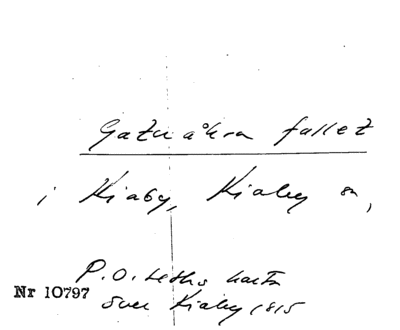 Gatuåkra fallet
i Kiaby, Kiaby sn,
P.O. Leths karta
Nr 10797
över Kiaby 1815